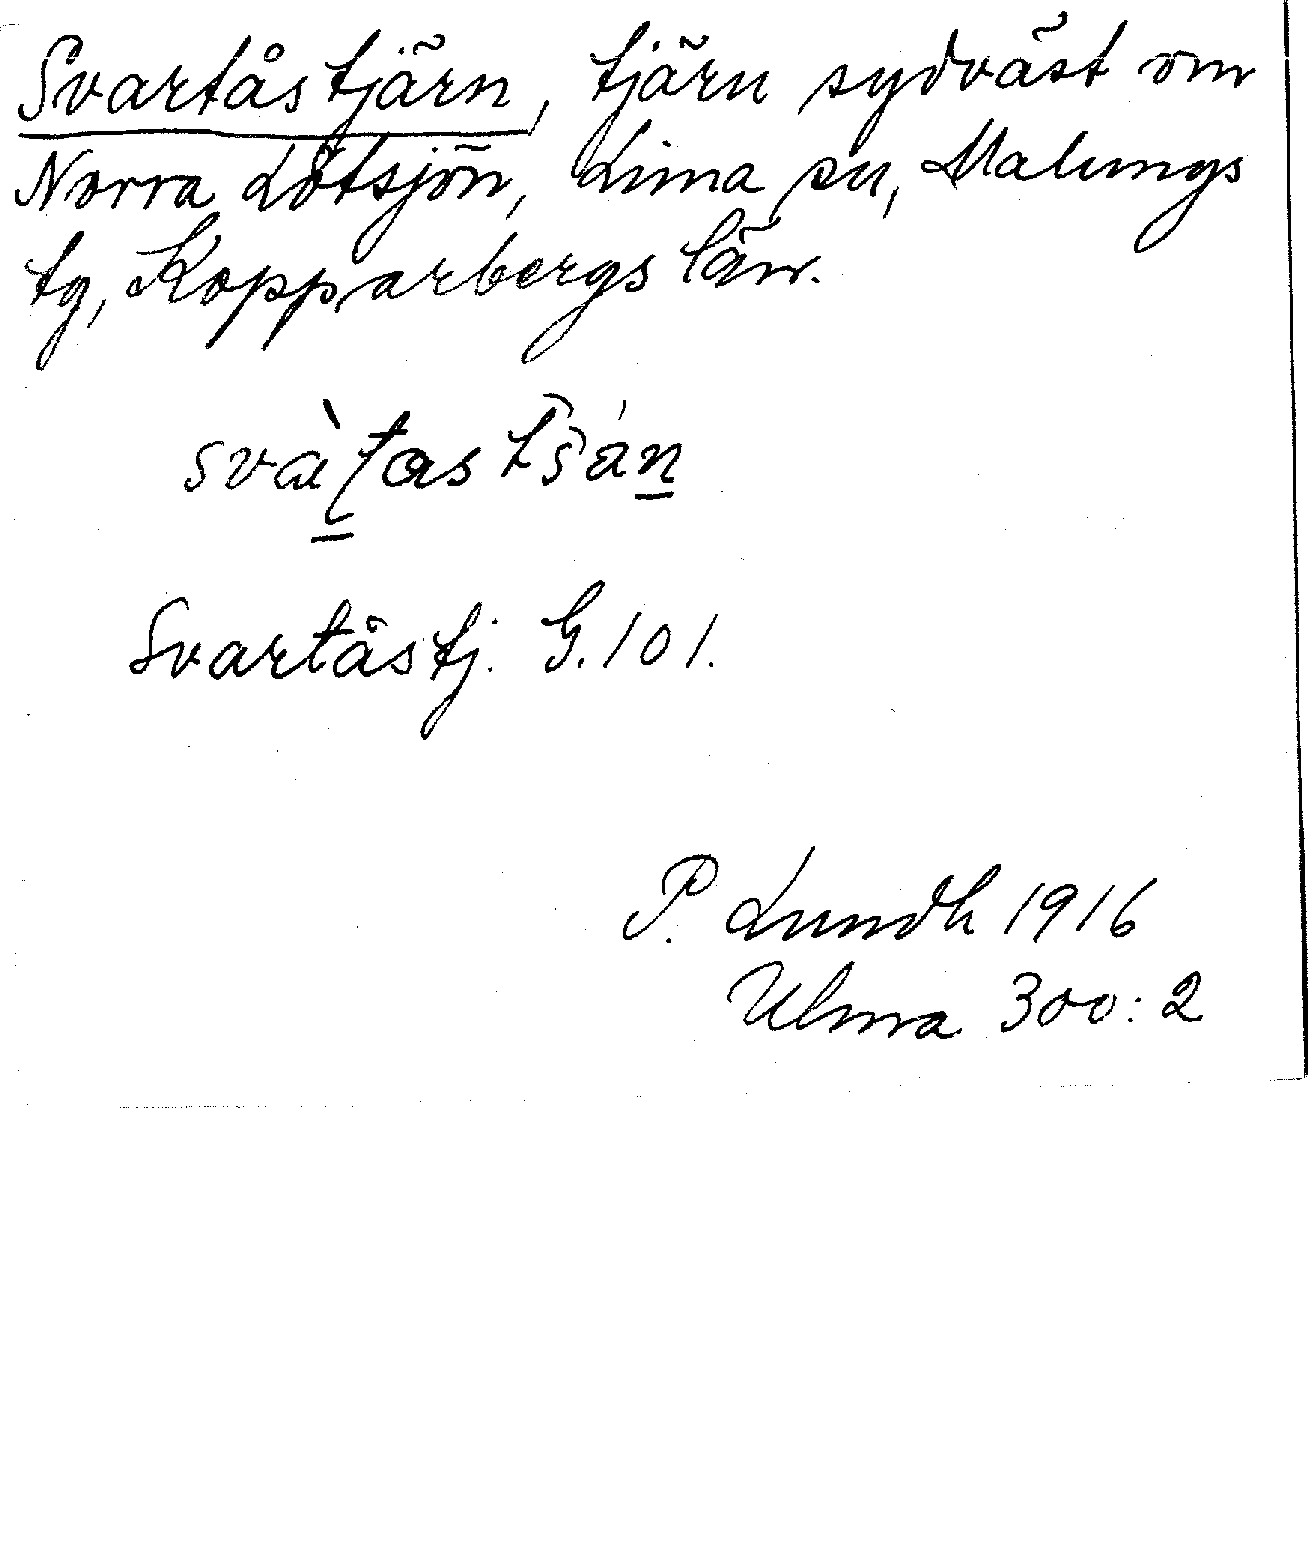 Svartåstjärn, tjärn sydväst om
Norra Lötsjön, Lima sn, Malungs
tg, Kopparbergs län.
svàtastšán
Svartåstj. G. 101.
P. Lundh 1916
Ulma 300:2